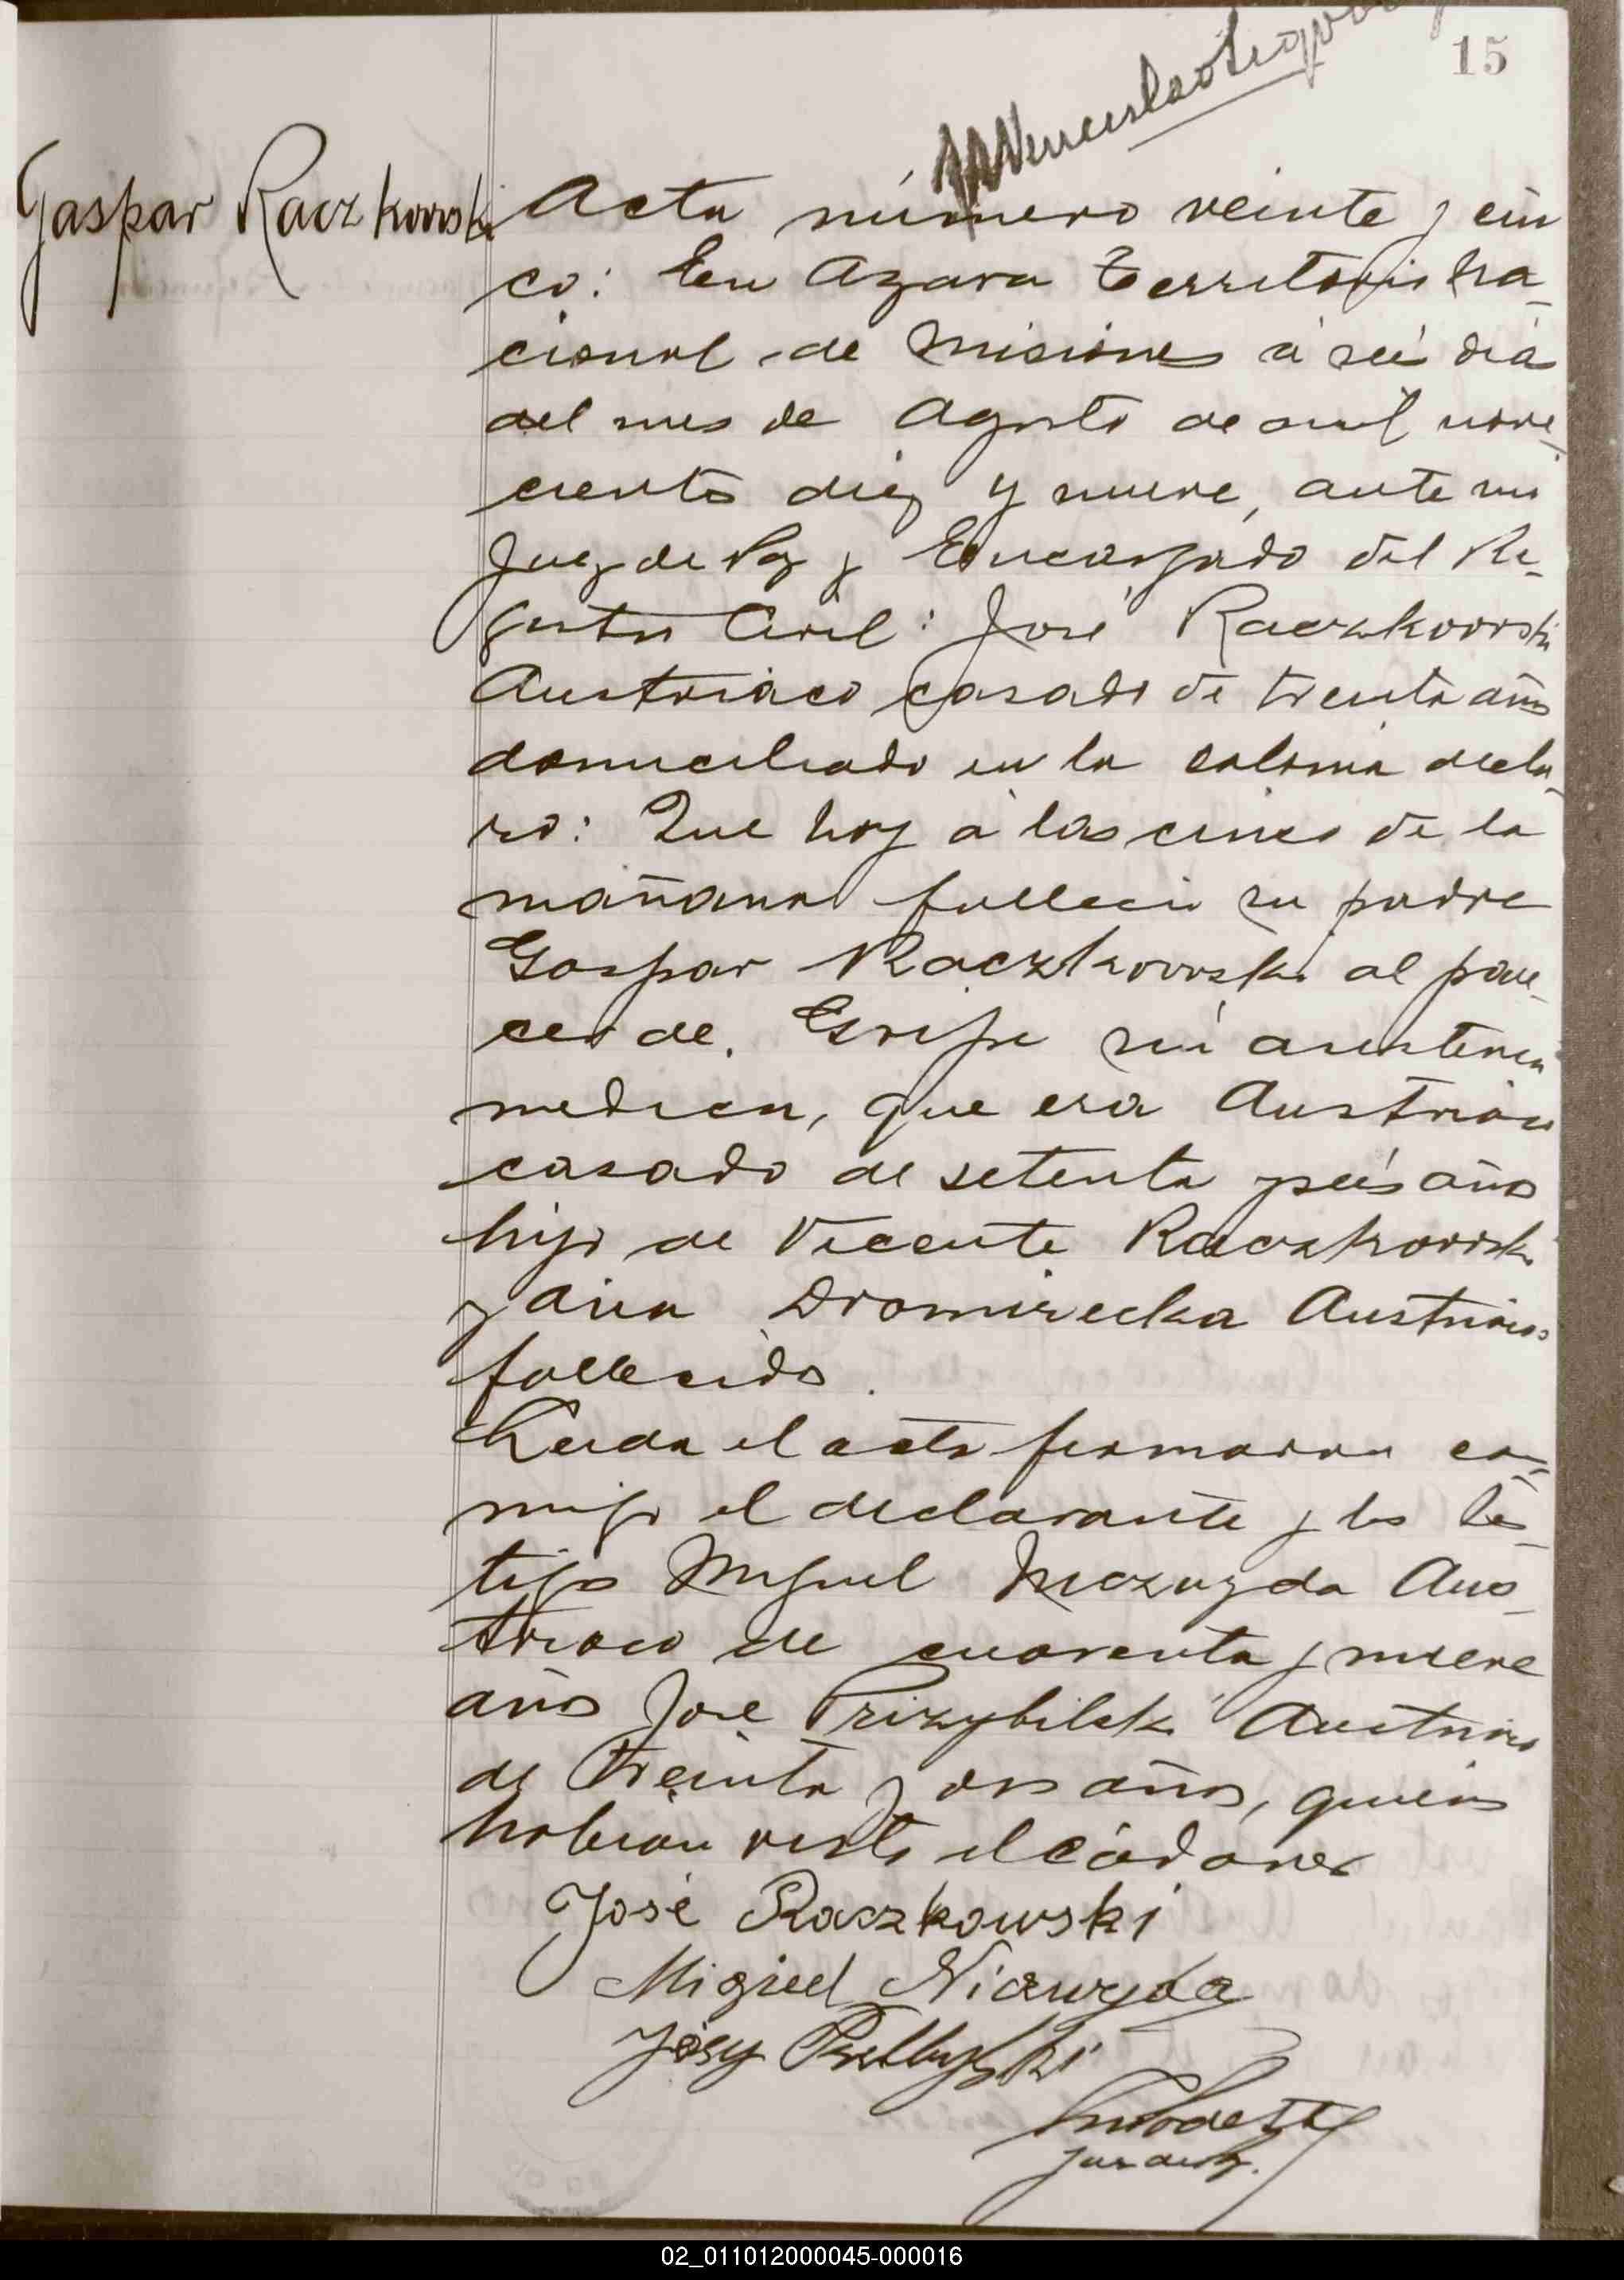 15
Wenceslao
Gaspar Raczkowski
Acta número veinte y cin
co: En Azara Territorio Na-
cional de Misiones á seis dias
del mes de Agosto de mil nove-
cientos diez y nueve, ante mi
Juez de Paz y Encargado del Re-
gistro Civil: José Raczkowski
Austriaco casado de treinta años
domiciliado en la colonia decla-
ro: Que hoy á las cinco de la
mañana fallecio su padre
Gaspar Raczkowski al pare-
cer de. Gripe sin asistencia
medica, que era Austriaco
casado de setenta y seis años
hijo de Vicente Raczkowski
y Ana Dromirecka Austriacos
fallecidos.
Leida el acta firmaron con-
migo el declarante y los tes-
tigos Miguel Niezuyda Aus-
triaco de cuarenta y nueve
años José Prizybilski Austriaco
de treinta y dos años, quienes
habian visto el cádaver
José Raczkowski
Migiuel Niezuyda
Józef
Juez de Paz.
02_011012000045-000016